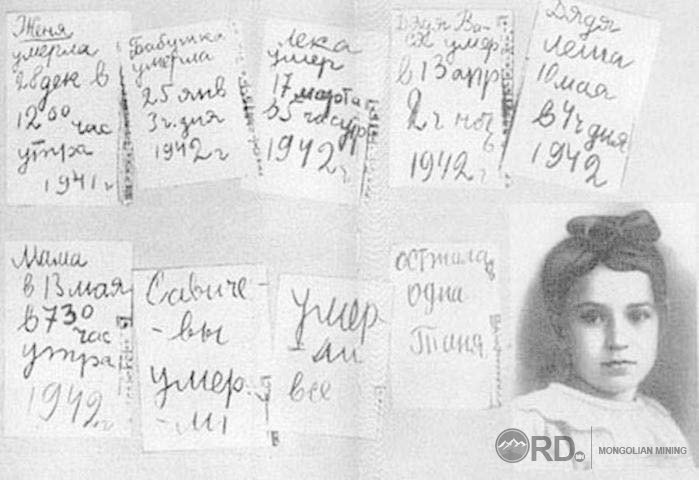 Женя
умерла
28 дек в
12 00 час
утра
1941 г
Бабушка
умерла
25 янв
3 ч. дня
1942 г
Лека
умер
17 марта
в 5 час утр
1942 г
Дядя Ва-
ся умер
в 13 апр
2 ч ноч
1942 г
Дядя
Леша
10 мая
в 4 ч дня
1942
Мама
в 13 мая
в 7 30
час
утра
1942 г
Савиче-
-вы
умер.
-ли
умер
-ли
все
осталась
одна
Таня
ORD.MN
MONGOLIAN MINING